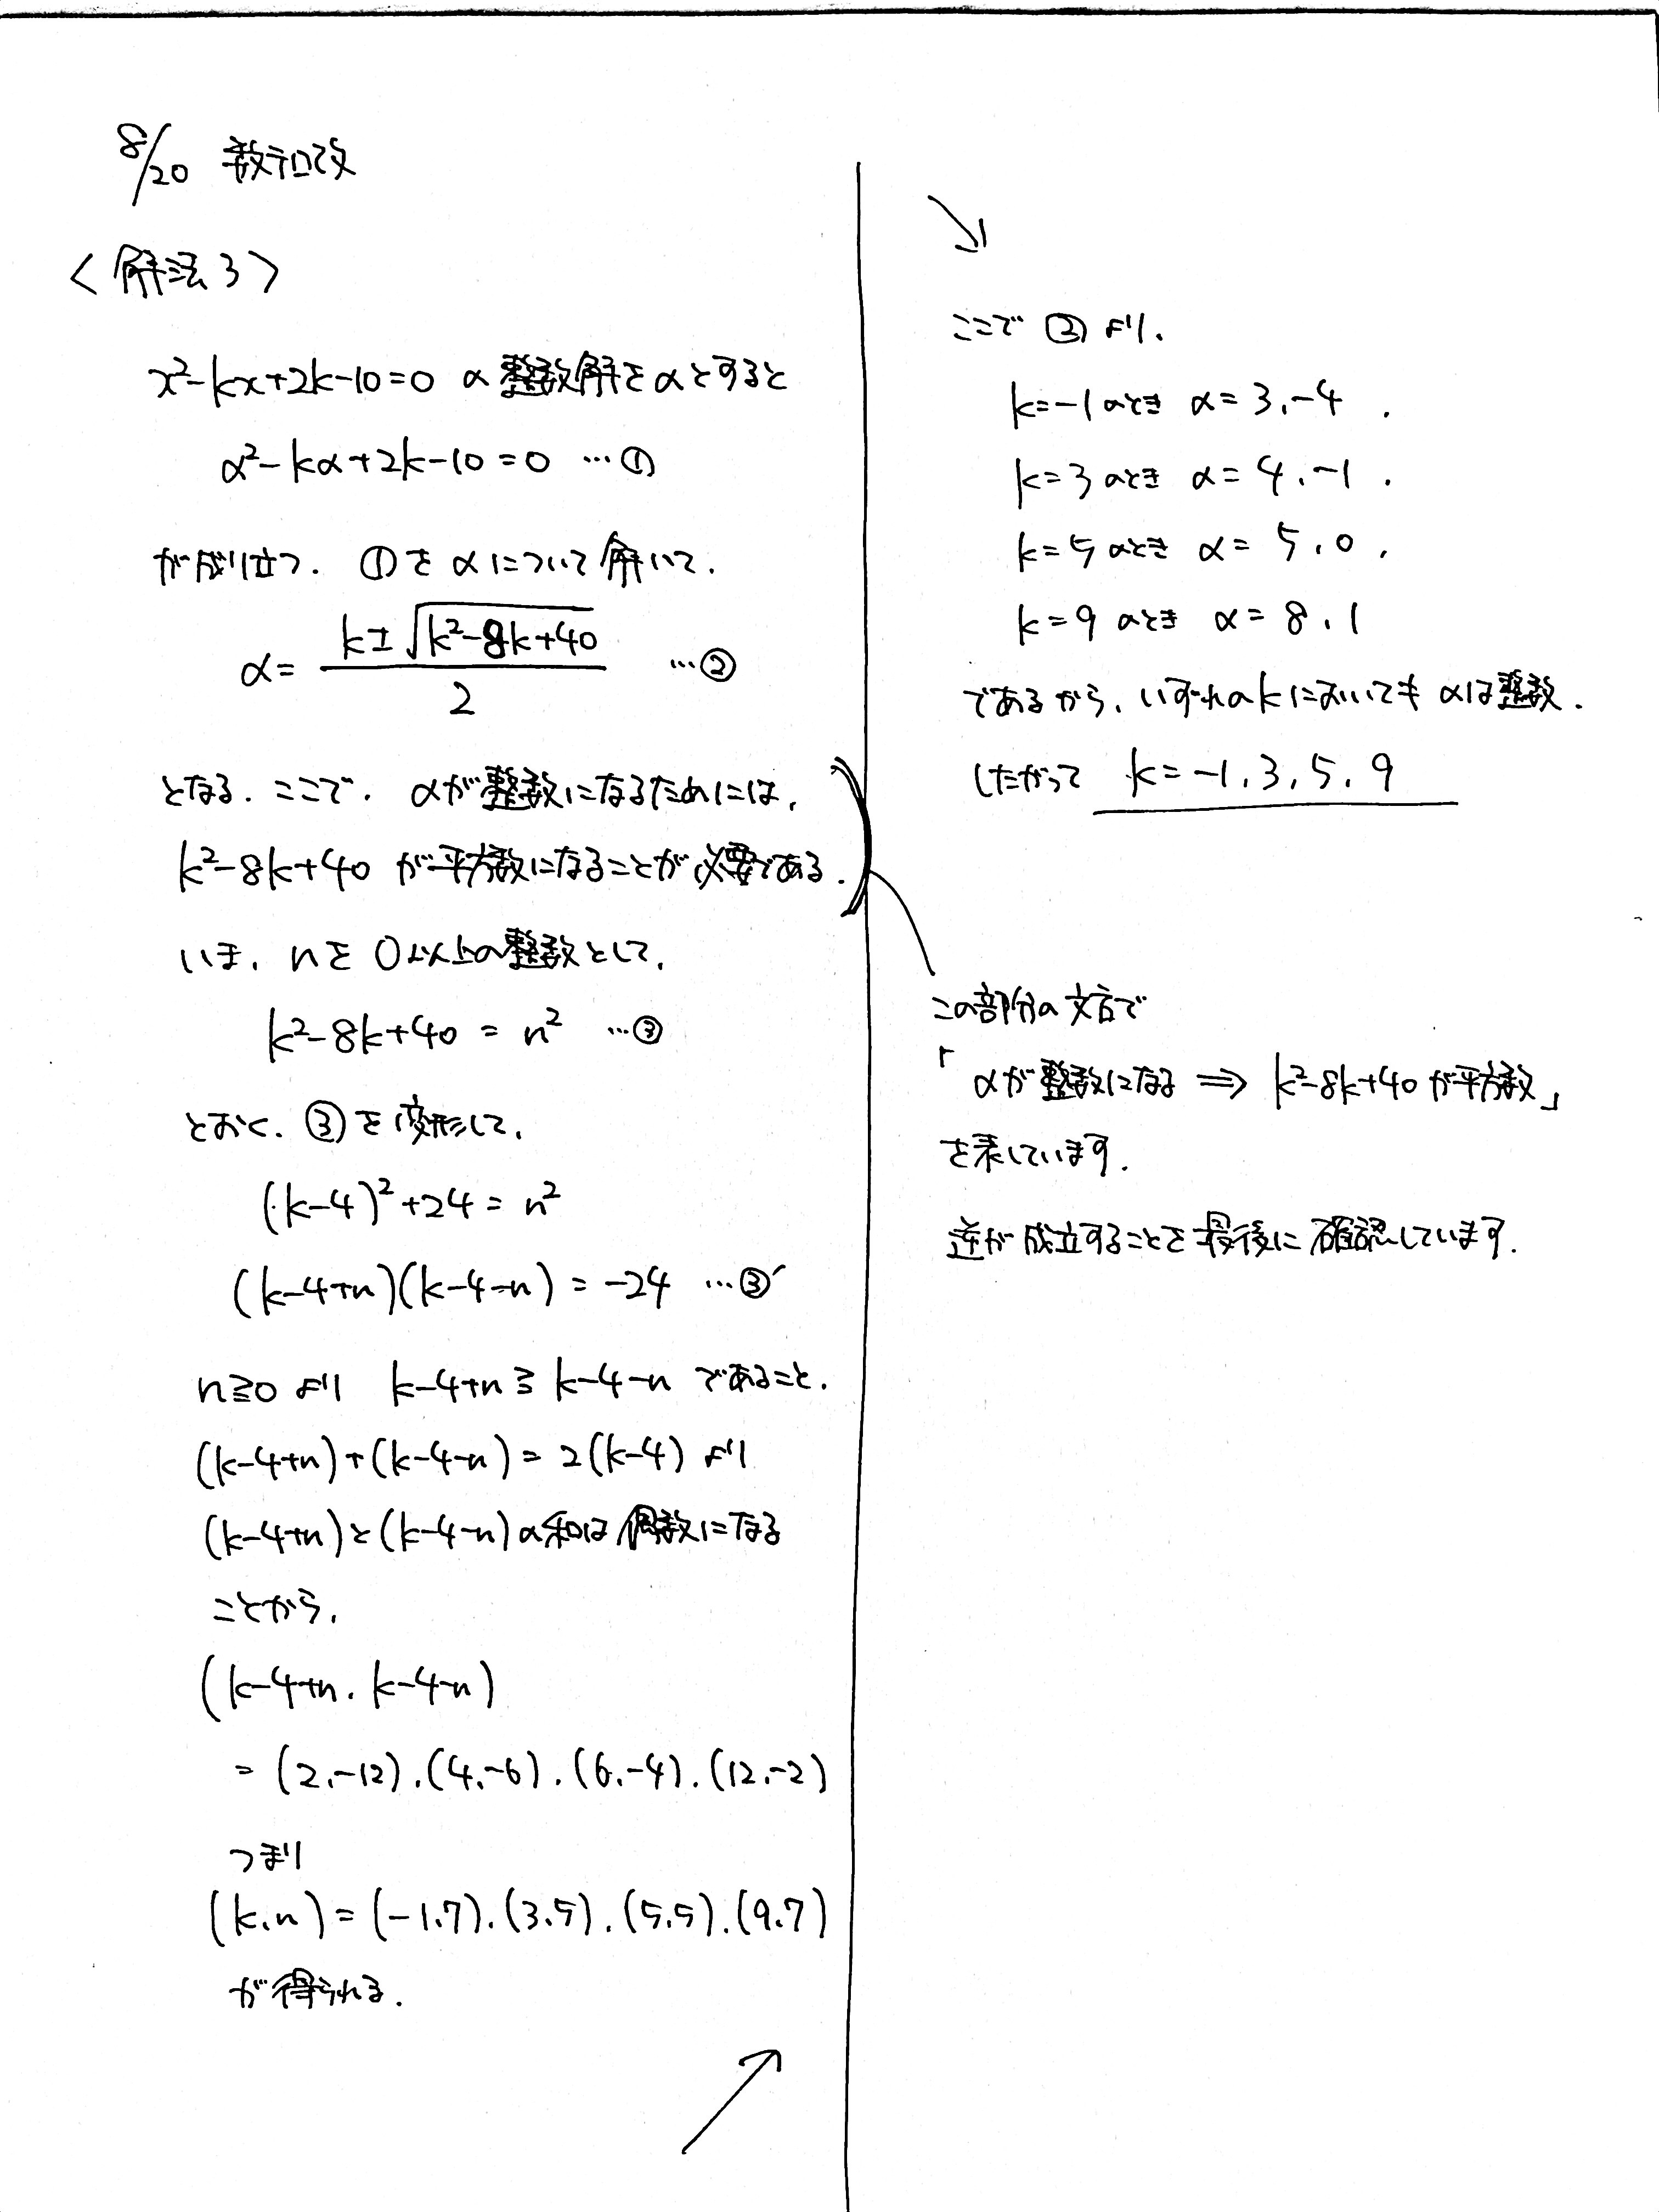 8/20 数テロ改
<解法3>
x²-kx+2k-10=0 の整数解をαとすると
α²-kα+2k-10=0 …①
が成り立つ. ①をαについて解いて.
α= (k±√(k²-8k+40))/2 …②
となる. ここで. αが整数になるためには,
k²-8k+40 が平方数になることが必要である.
いま, nを 0以上の整数として,
k²-8k+40 = n² …③
とおく. ③を変形して,
(k-4)²+24 = n²
(k-4+n)(k-4-n) = -24 …③′
n≧0 より k-4+n ≧ k-4-n であること,
(k-4+n)+(k-4-n) = 2(k-4) より
(k-4+n)と(k-4-n)の和は偶数になる
ことから,
(k-4+n, k-4-n)
= (2,-12), (4,-6), (6,-4), (12,-2)
つまり
(k,n) = (-1,7), (3,5), (5,5), (9,7)
が得られる.
ここで ②より,
k=-1のとき α= 3, -4 ,
k=3のとき α= 4, -1 ,
k=5のとき α= 5, 0 ,
k=9のとき α= 8, 1
であるから, いずれのkにおいてもαは整数.
したがって k=-1, 3, 5, 9
この部分の文言で
「αが整数になる ⇒ k²-8k+40が平方数」
を表しています.
逆が成立することを最後に確認しています.